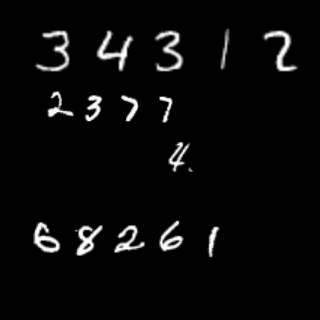 3 4 3 1 2
2 3 7 7
4.
6 8 2 6 1